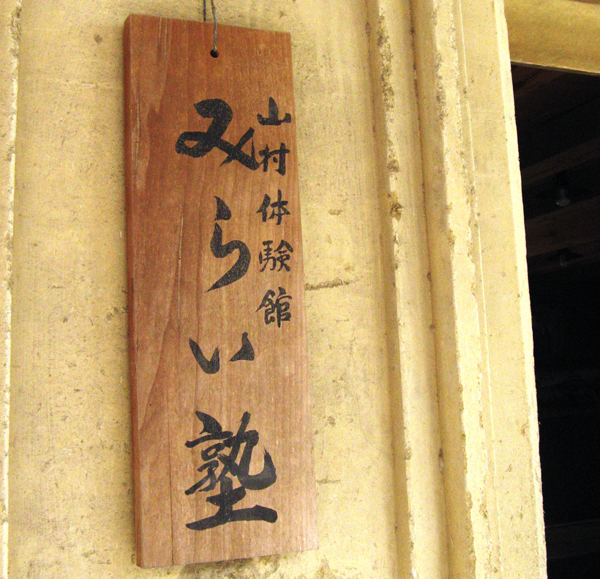 山村体験館
みらい塾